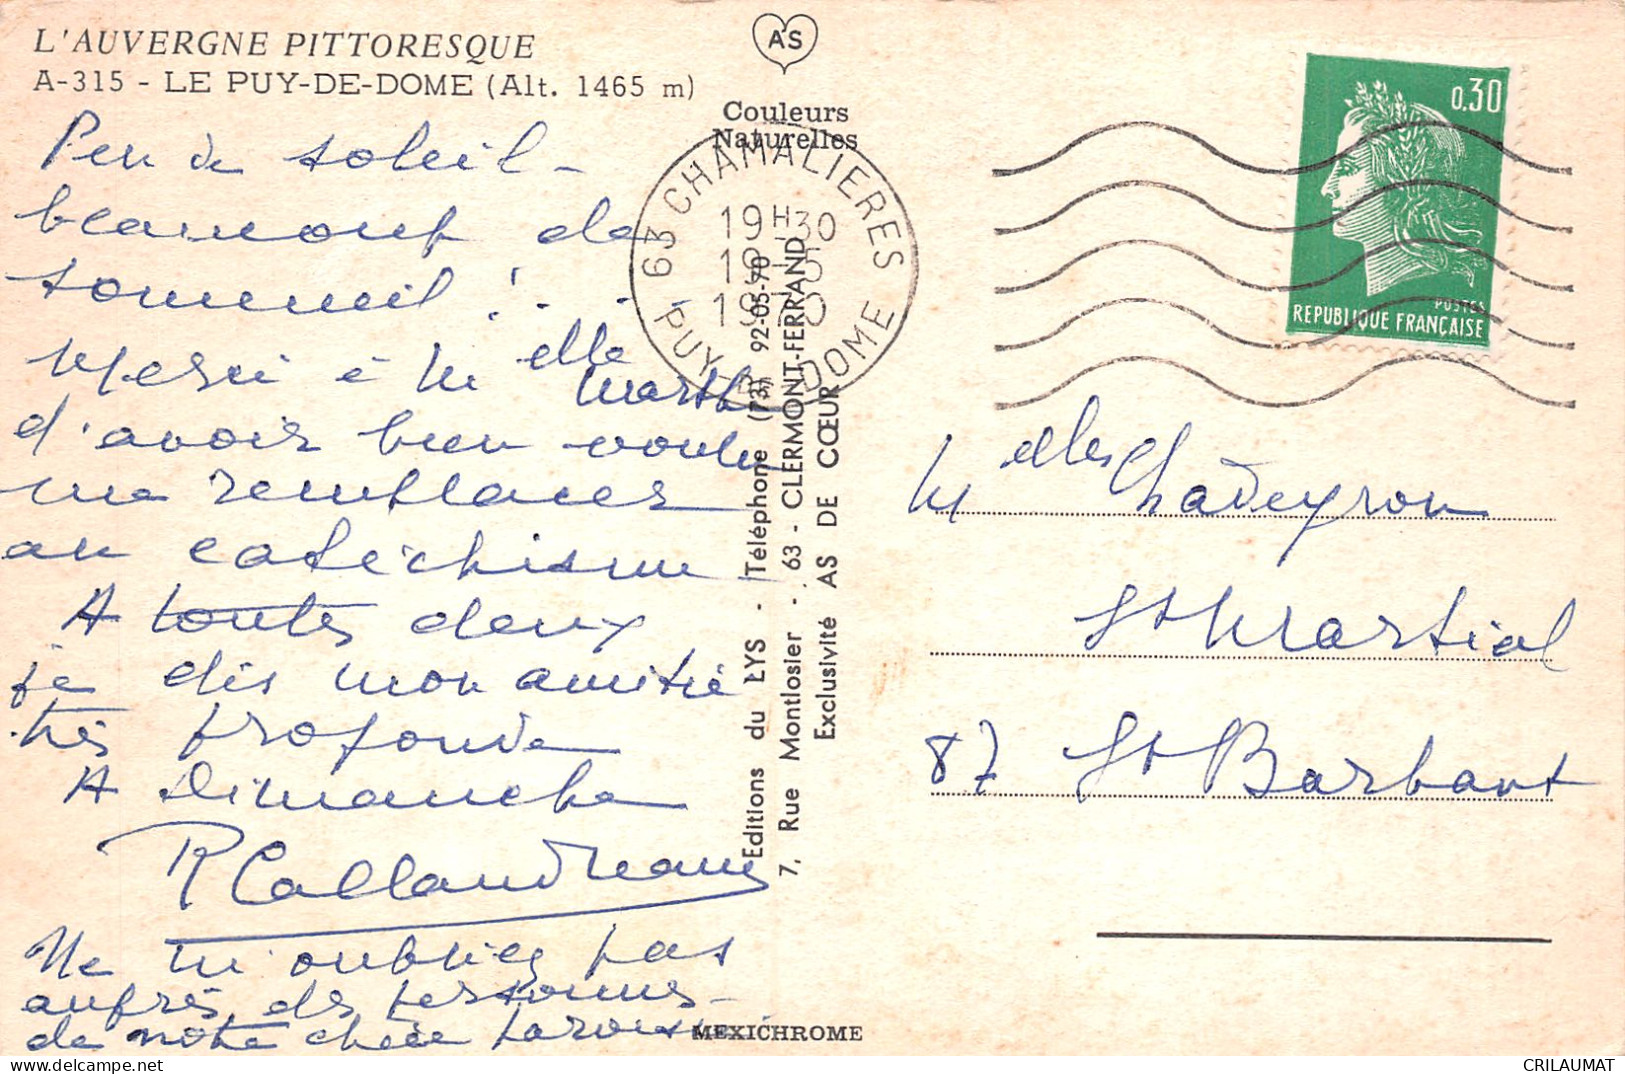 L'AUVERGNE PITTORESQUE
A-315 - LE PUY-DE-DOME (Alt. 1465 m)
Peu de soleil -
beaucoup de
sommeil ! . .
Merci à Melle Marthe
d'avoir bien voulu
me remplacer
au catéchisme
A toutes deux
je dis mon amitié
très profonde
A Dimanche
R Callandreau
Ne m'oubliez pas
auprès des personnes
de notre chère paroisse
AS
Couleurs
Naturelles
63 CHAMALIERES
19H30
19-5
1970
PUY DE DOME
Editions du LYS - Téléphone (73) 92-05-70
7, Rue Montlosier - 63 - CLERMONT-FERRAND
Exclusivité AS DE CŒUR
MEXICHROME
0,30
POSTES
REPUBLIQUE FRANÇAISE
Melles Chadeyron
St Martial
87 St Barbant
CRILAUMAT